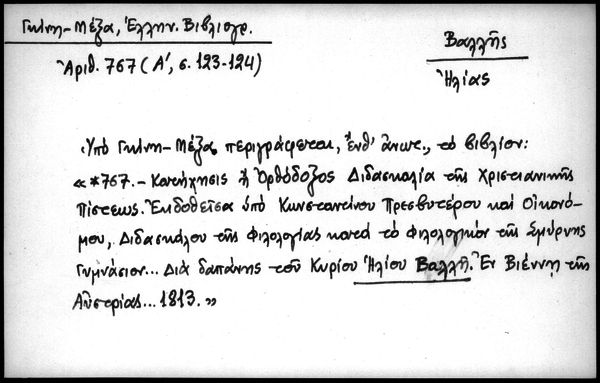 Γκίνη-Μέξα, Ἑλλην. Βιβλιογρ.
Ἀριθ. 767 (Α', σ. 123-124)
Βαλλῆς
Ἠλίας
Ὑπό Γκίνη-Μέξα περιγράφεται, ἔνθ' ἄνωτ., τό βιβλίον:
« *767.- Κατήχησις ἤ Ὀρθόδοξος Διδασκαλία τῆς Χριστιανικῆς
Πίστεως. Ἐκδοθεῖσα ὑπό Κωνσταντίνου Πρεσβυτέρου καί Οἰκονό-
μου, Διδασκάλου τῆς Φιλολογίας κατά τό Φιλολογικόν τῆς Σμύρνης
Γυμνάσιον... Διά δαπάνης τοῦ Κυρίου Ἠλίου Βαλλῆ. Ἐν Βιέννῃ τῆς
Αὐστρίας... 1813. »